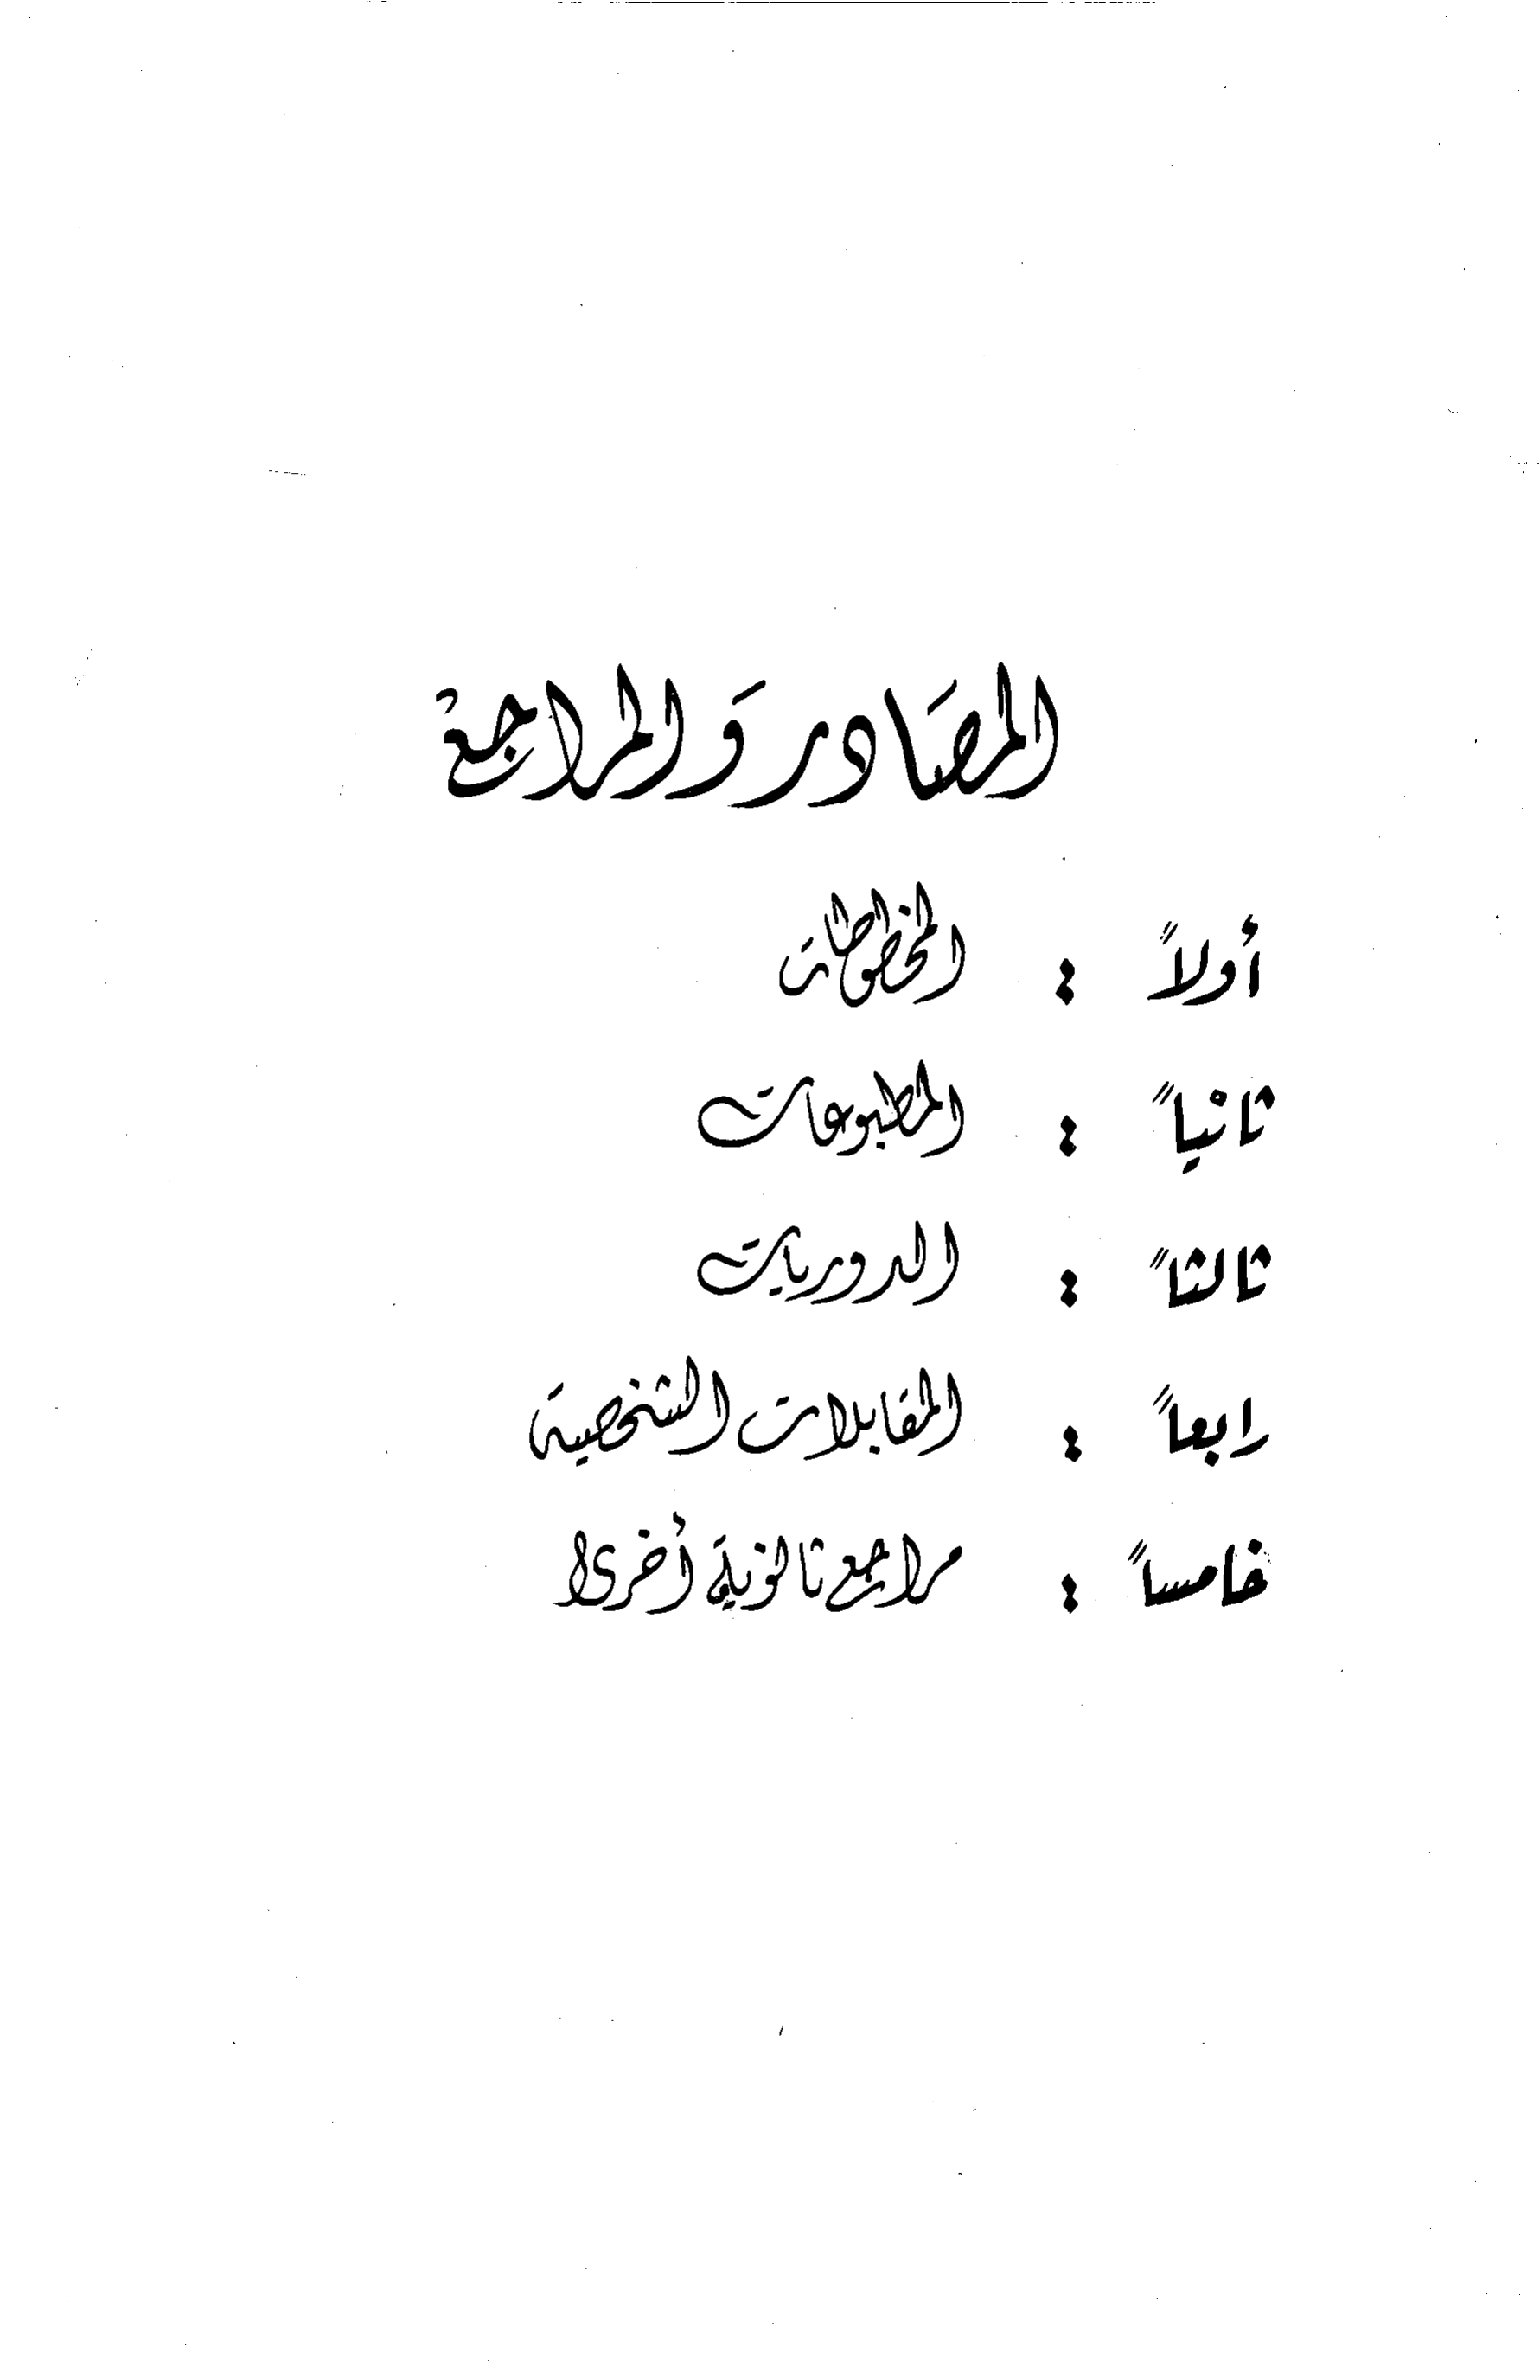 المصَادر وَالمراجعْ
أولاً : المخطوطات
ثانياً : المطبوعات
ثالثاً : الدوريات
رابعاً : المقابلات الشخصية
خامساً : مراجع ثانوية أخرى